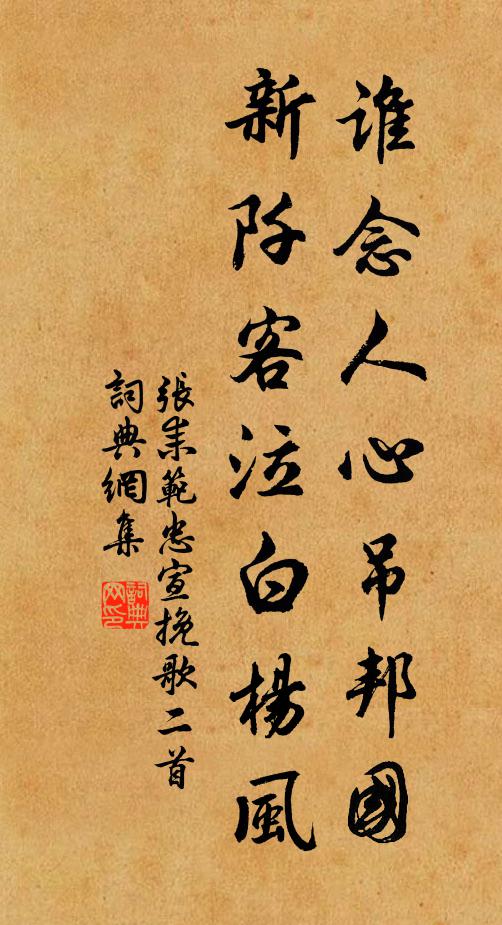 誰念人心吊邦國
新阡客泣白楊風
張耒範忠宣挽歌二首
詞典網集
詞典網印